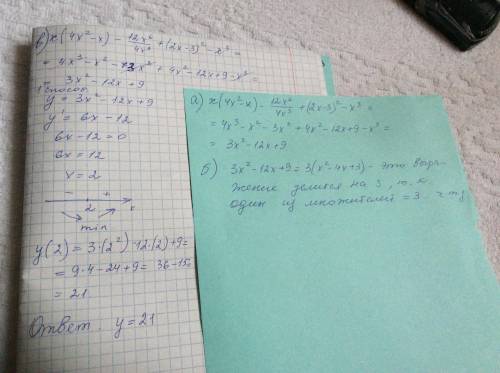 в) x(4x²-x) - 12x⁶/4x³ + (2x-3)² - x³ =
= 4x³ - x² - 3x² + 4x² - 12x + 9 - x³ =
= 3x² - 12x + 9
1 способ
y = 3x² - 12x + 9
y' = 6x - 12
6x - 12 = 0
6x = 12
x = 2
- +
2 x
min
y(2) = 3·(2²) - 12·(2) + 9 =
= 9·4 - 24 + 9 = 36 - 15=
= 21
Ответ. y = 21
а) x(4x²-x) - 12x⁶/4x³ + (2x-3)² - x³ =
= 4x³ - x² - 3x² + 4x² - 12x + 9 - x³ =
= 3x² - 12x + 9
б) 3x² - 12x + 9 = 3(x² - 4x + 3) - это выра-
жение делится на 3, т.к.
один из множителей = 3. ч т д